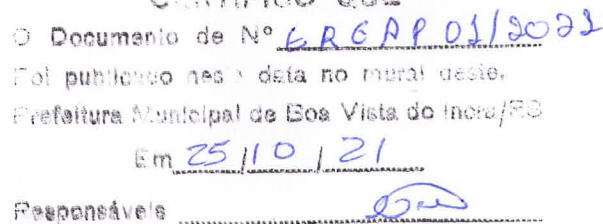 CERTIFICO QUE
O Documento de Nº EREAP 01/2021
Foi publicado nesta data no mural deste,
Prefeitura Municipal de Boa Vista do Incra/RS
Em 25/10/21
Responsáveis